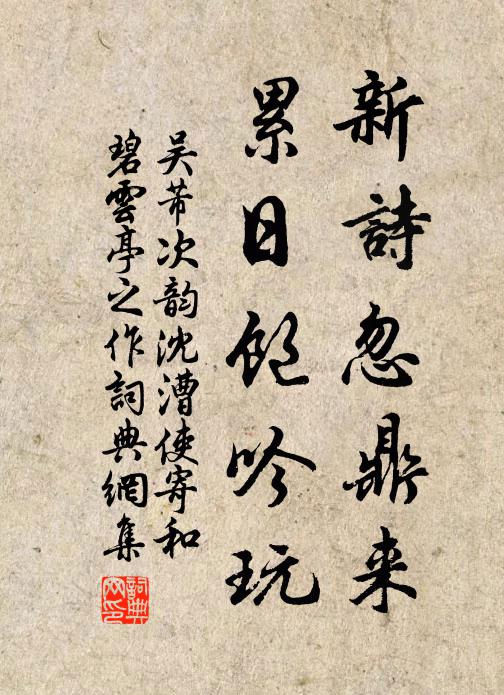 新詩忽鼎来
累日飽吟玩
吴芾次韵沈漕使寄和
碧雲亭之作詞典網集
詞典
网印